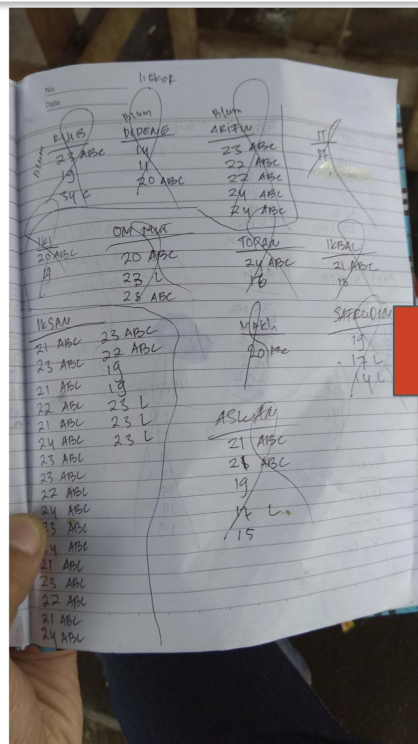 No.
Date
Blum
RUIB
23 ABC
19
34 C
Blum
14
11
20 ABC
Blum
23 ABC
22 ABC
22 ABC
24 ABC
24 ABC
IKI
20 ABC
19
OM
20 ABC
23 L
23 ABC
24 ABC
16
IKBAL
21 ABC
IKSAN
21 ABC
23 ABC
21 ABC
22 ABC
21 ABC
24 ABC
23 ABC
23 ABC
22 ABC
24 ABC
33 ABC
24 ABC
21 ABC
23 ABC
22 ABC
21 ABC
24 ABC
23 ABC
22 ABC
19
19
23 L
23 L
23 L
MAKLI
20 ABC
19
17 L
14 L
21 ABC
ABC
19
17 L
15